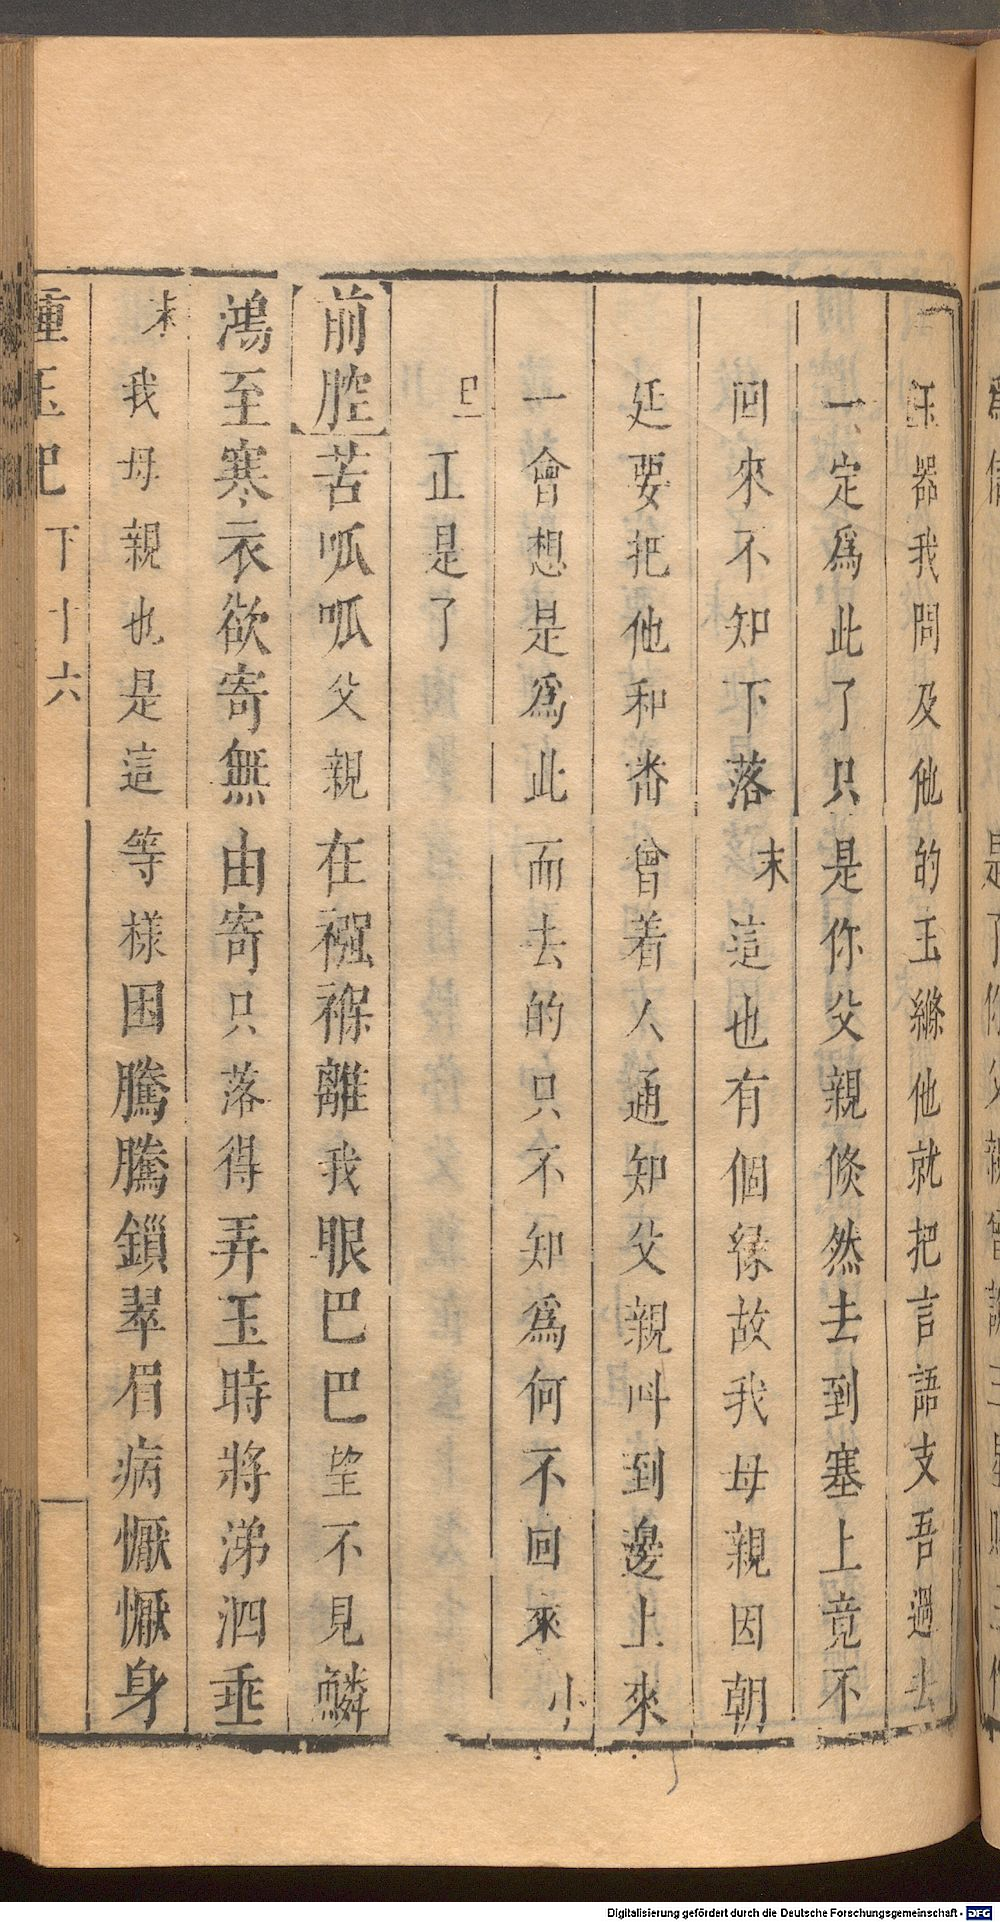 玉器我問及他的玉縧他就把言語支吾過去
一定爲此了只是你父親倐然去到塞上竟不
回來不知下落末這也有個緣故我母親因朝
廷要把他和番曾着人通知父親呌到邊上來
一會想是爲此而去的只不知爲何不回來小
旦正是了
前腔苦呱呱父親在襁褓離我眼巴巴望不見鱗
鴻至寒衣欲寄無由寄只落得弄玉時將涕泗垂
末我母親也是這等樣困騰騰鎖翠眉病懨懨身
種玉記 下 十六
Digitalisierung gefördert durch die Deutsche Forschungsgemeinschaft - DFG